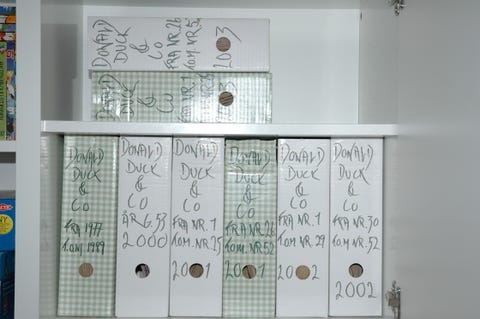 DONALD
DUCK
&
CO
FRA NR. 26
T.O.M NR. 52
2003
DONALD
DUCK
&
CO
FRA NR. 1
2003
DONALD
DUCK
&
CO
FRA 1977
T.O.M 1989
DONALD
DUCK
&
CO
ÅRG. 53
2000
DONALD
DUCK
&
CO
FRA NR. 1
T.O.M. NR. 25
2001
DONALD
DUCK
&
CO
FRA NR. 26
T.O.M. NR. 52
2001
DONALD
DUCK
&
CO
FRA NR. 1
T.O.M. NR. 29
2002
DONALD
DUCK
&
CO
FRA NR. 30
T.O.M NR. 52
2002